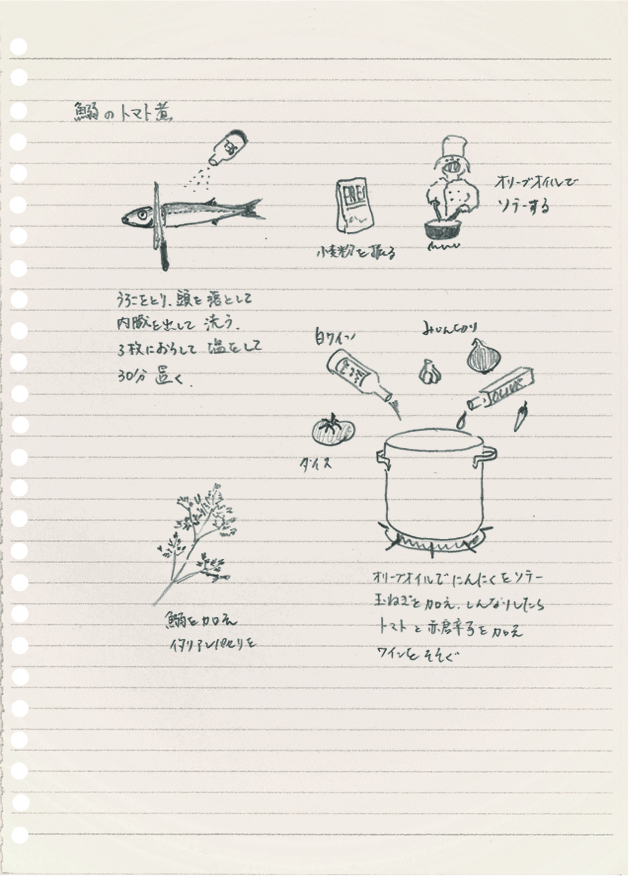 鰯のトマト煮
オリーブオイルで
ソテーする
小麦粉を振る
うろこをとり、頭を落として
内臓を出して 洗う。
3枚におろして 塩をして
30分 置く。
白ワイン
みじんぎり
OLIVE
ダイス
オリーブオイルでにんにくをソテー
玉ねぎを加え、しんなりしたら
トマトと赤唐辛子を加え
ワインをそそぐ
鰯を加え
イタリアンパセリを